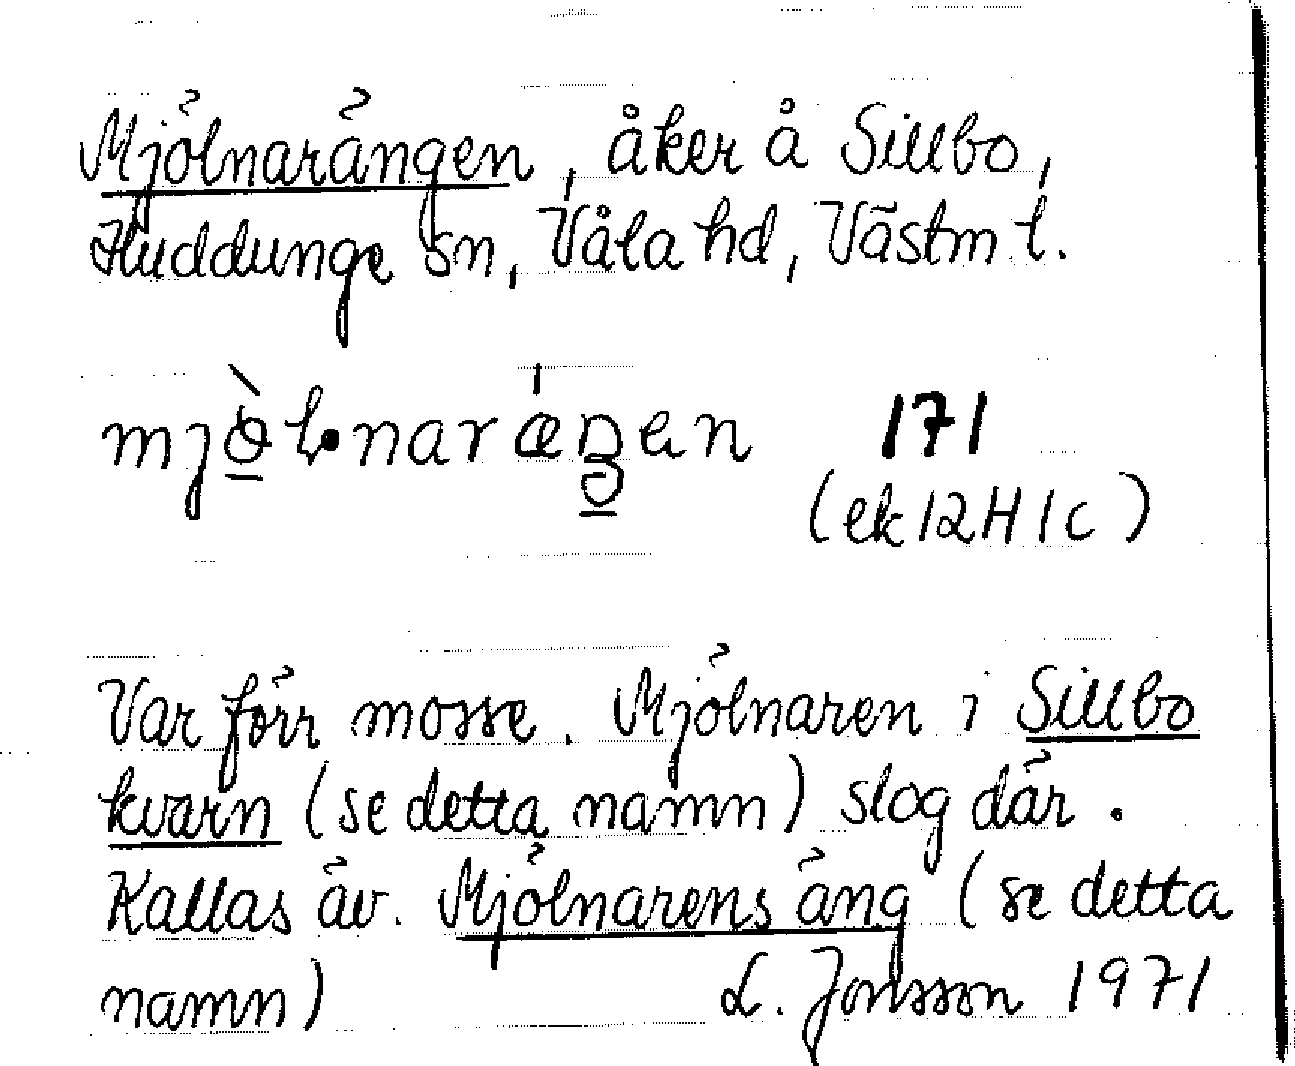 Mjölnarängen, åker å Sillbo,
Huddunge sn, Våla hd, Västm l.
171
(ek 12H 1c)
Var förr mosse. Mjölnaren i Sillbo
kvarn (se detta namn) slog där.
Kallas äv. Mjölnarens äng (se detta
namn) L. Jonsson 1971